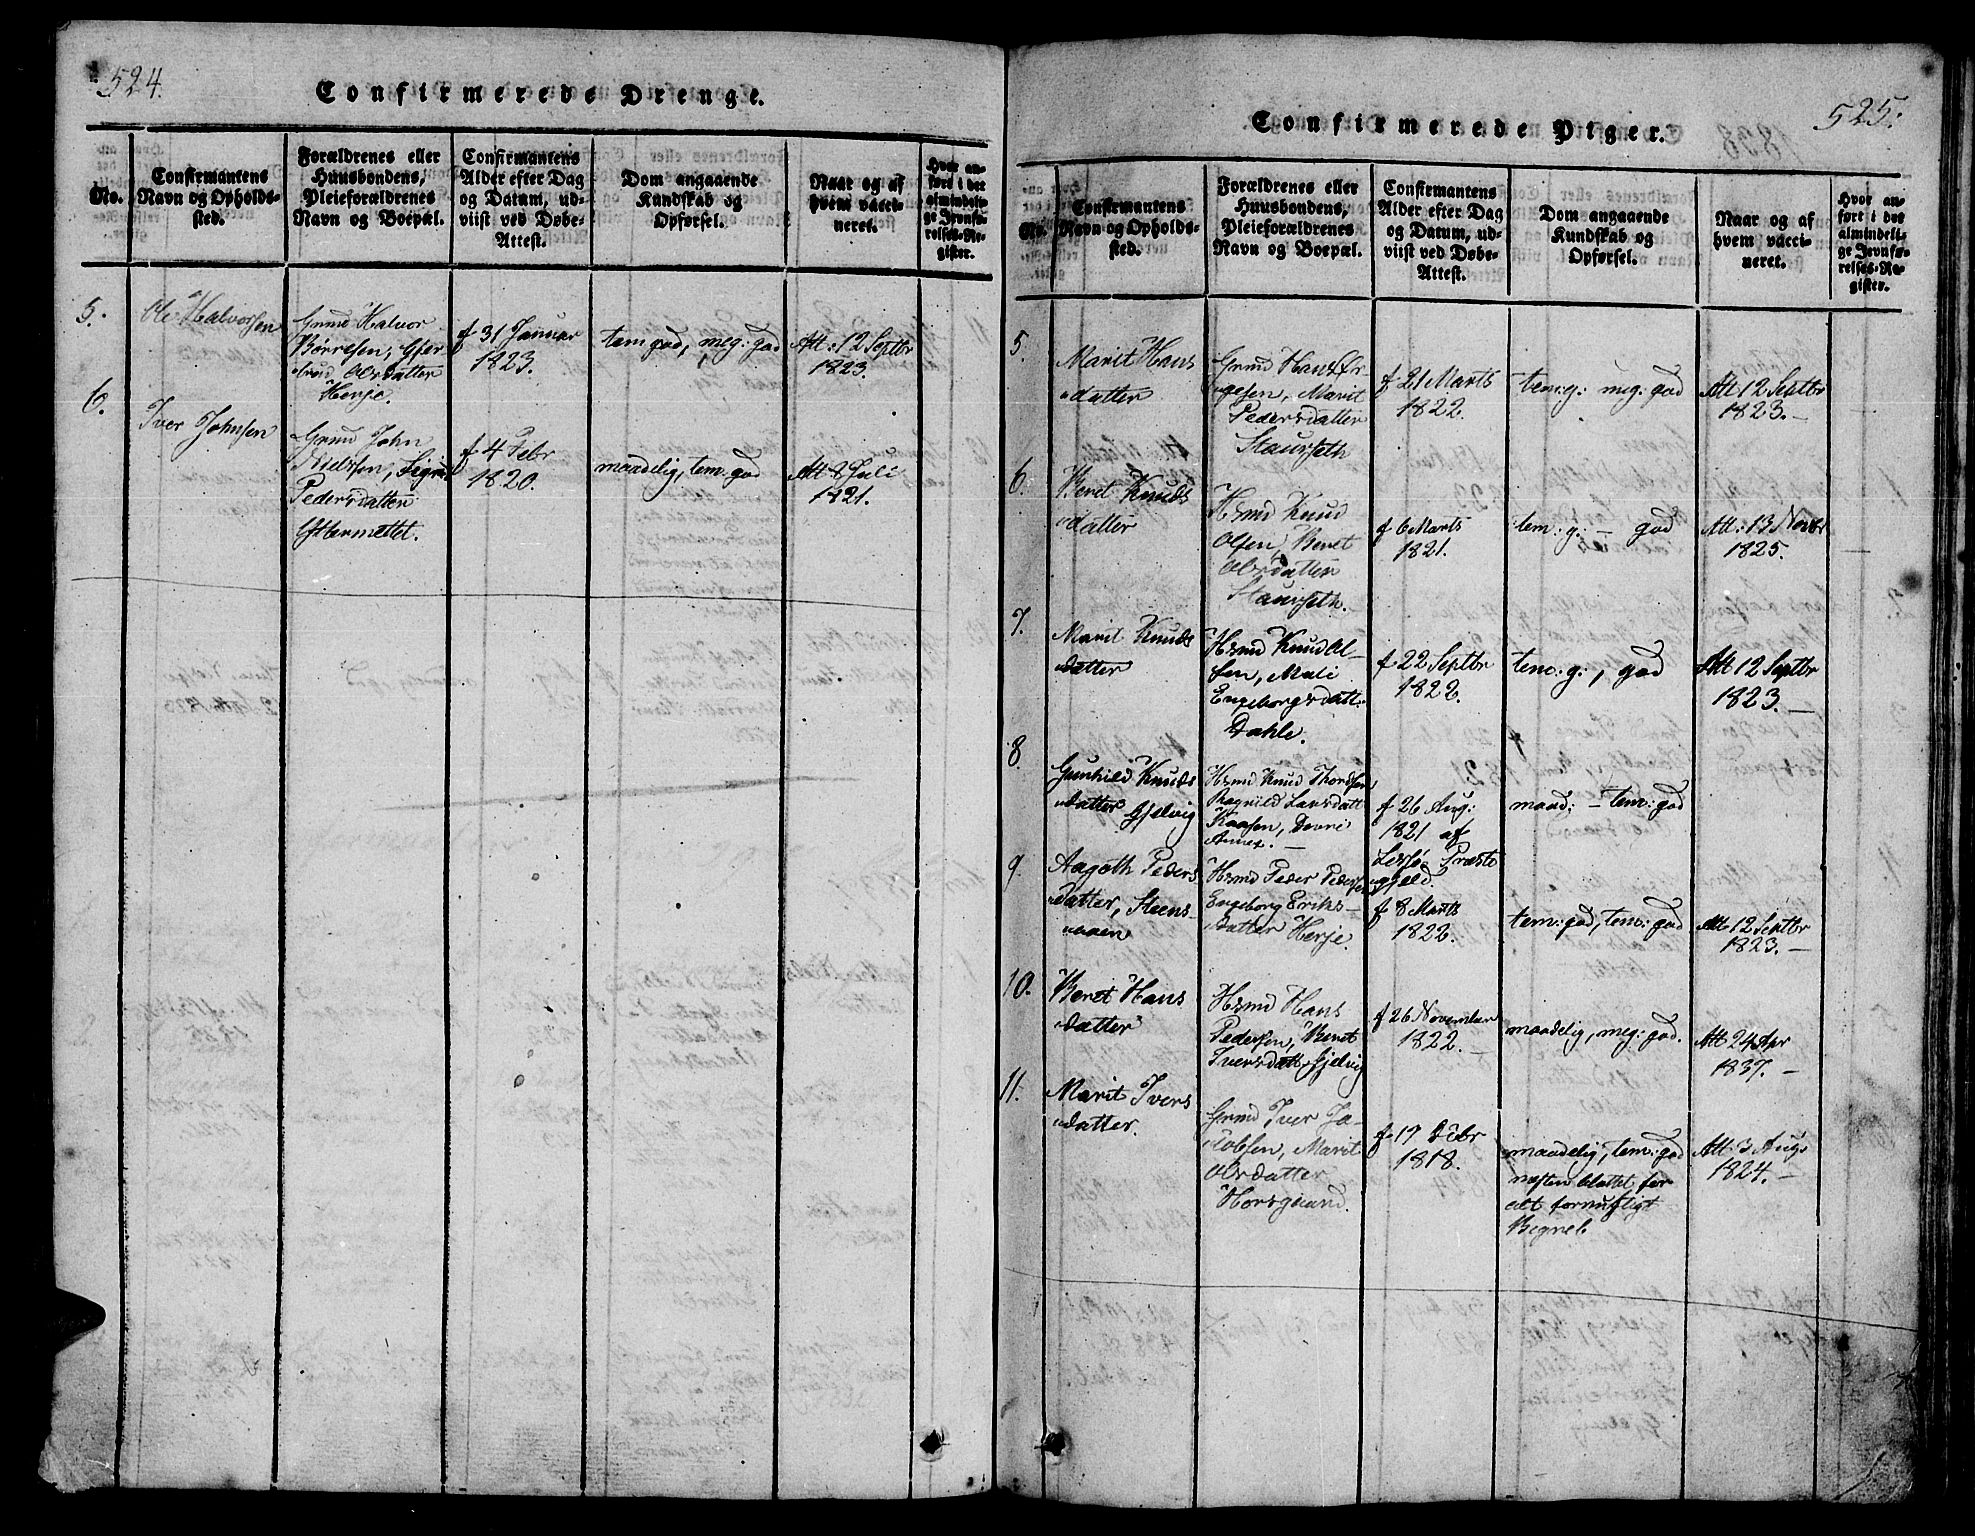 524.
Confirmerede Drenge.
No.
Confirmantens
Navn og Opholds-
sted.
Forældrenes eller
Huusbondens,
Pleieforældrenes
Navn og Boepæl.
Confirmantens
Alder efter Dag
og Datum, ud-
viist ved Døbe-
Attest.
Dom angaaende
Kundskab og
Opførsel.
Naar og af
hvem vacci-
neret.
Hvor an-
ført i det
almindeli-
ge Jevnfø-
relses-Re-
gister.
5.
Ole Halvorsen
Grmd Halvor
Børresen,
Olsdatter
Herje.
f 31 Januar
1823.
tem god, meg: god
Att: 12 Septbr
1823.
6.
Iver Johnsen
Grmd John
Nielsen, Sigri
Pedersdatter
f 4 Febr
1820.
maadelig, tem: god
Att 8 Juli
1821.
525.
Confirmerede Piger.
No.
Confirmantens
Navn og Opholds-
sted.
Forældrenes eller
Huusbondens,
Pleieforældrenes
Navn og Boepæl.
Confirmantens
Alder efter Dag
og Datum, ud-
viist ved Døbe-
Attest.
Dom angaaende
Kundskab og
Opførsel.
Naar og af
hvem vacci-
neret.
Hvor an-
ført i det
almindeli-
ge Jevnfø-
relses-Re-
gister.
5.
Marit Hans
datter
Grmd Hans
Marit
Pedersdatter
Staurseth
f 21 Marts
1822.
tem: g: meg: god
Att 12 Septbr
1823. -
6.
Beret Knuds
datter
Hsmd Knud
Olsen, Beret
Olsdatter
Staurseth.
f 6 Marts
1821.
tem: g: - god
Att: 13 Novbr
1825.
7.
Marit Knuds
datter
Hsmd Knud Ol-
sen, Mali
Engeborgsdatt:
Dahle.
f 22 Septbr
1822.
tem: g:, god
Att 12 Septbr
1823. -
8.
Gunhild Knuds
datter Gjelvig
Hsmd Knud Thordsen
Ragnild Larsdatt
Kaasen, Dovre
Annex. -
f 26 Aug:
1821 af
Lessø Præste
gjeld.
maad: - tem: god
9.
Aagoth Peders
datter, Steens-
aaen
Hsmd Peder Pedersen
Engeborg Eriks-
datter Herje.
f 8 Marts
1822.
tem: god, tem: god
Att 12 Septbr
1823. -
10.
Beret Hans
datter
Hsmd Hans
Pedersen, Beret
Iversdatt. Gjelvig
f 26 November
1822. -
maadelig, meg: god.
Att 24 Apr
1837. -
11.
Marit Ivers
datter.
Grmd Iver Ja-
cobsen, Marit
Olsdatter
Horsgaard.
f 17 Debr
1818.
maadelig, tem: god
næsten blottet for
alt fornuftigt
Begreb
Att 3 Aug
1824. -